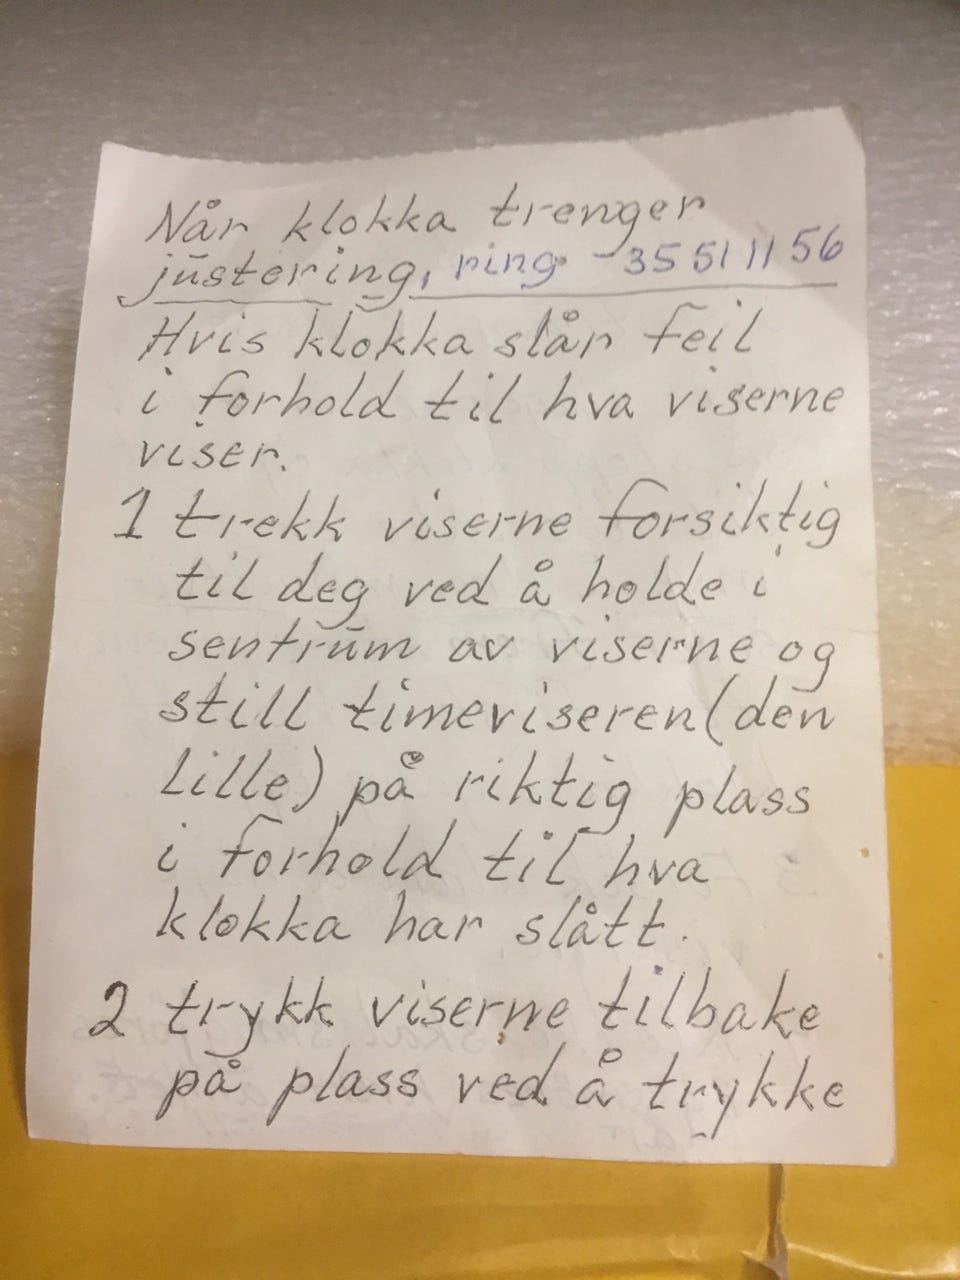 Når klokka trenger
justering, ring - 35 51 11 56
Hvis klokka slår feil
i forhold til hva viserne
viser.
1 trekk viserne forsiktig
til deg ved å holde i
sentrum av viserne og
still timeviseren (den
lille) på riktig plass
i forhold til hva
klokka har slått.
2 trykk viserne tilbake
på plass ved å trykke